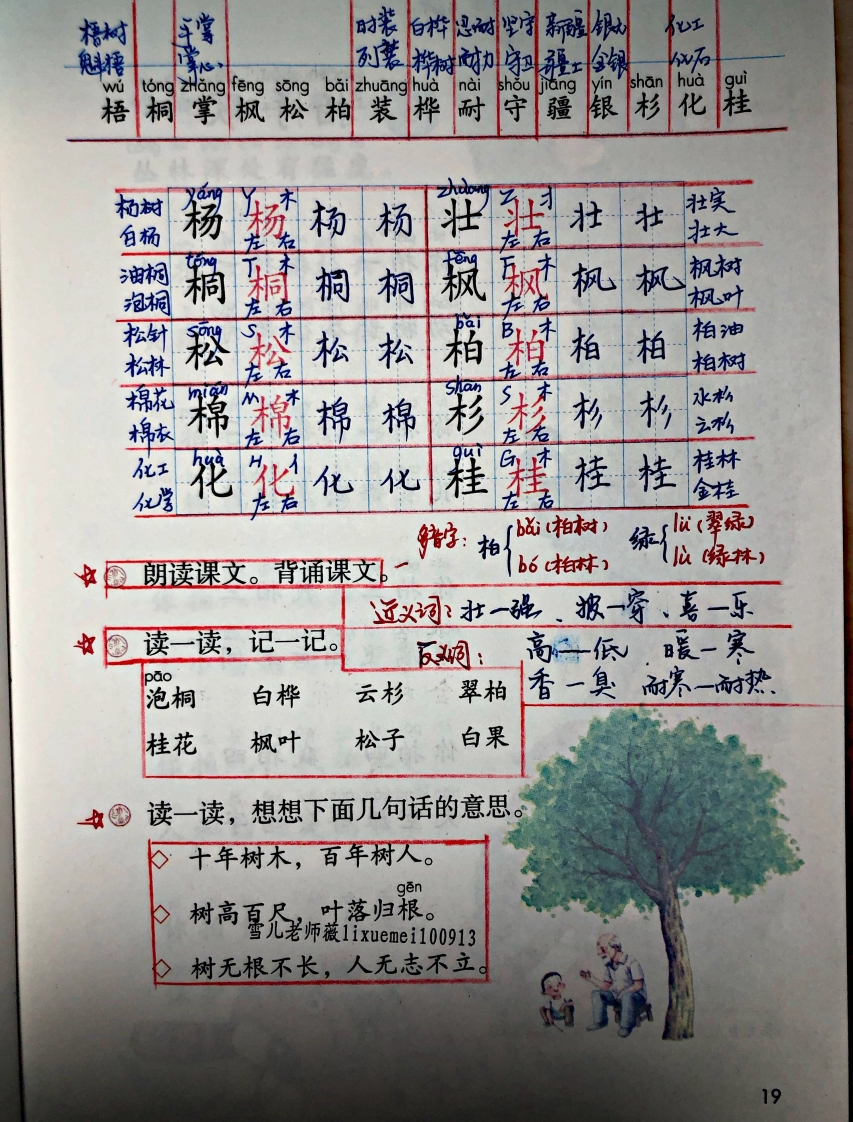 梧树 手掌 时装 白桦 忍耐 坚守 新疆 银九 化工
魁梧 掌心 列装 桦树 耐力 守卫 疆土 金银 化石
wú tóng zhǎng fēng sōng bǎi zhuāng huà nài shǒu jiāng yín shān huà guì
梧 桐 掌 枫 松 柏 装 桦 耐 守 疆 银 杉 化 桂
yáng zhuàng
杨树 杨 Y 木 杨 杨 杨 壮 Z 丬 壮 壮 壮 壮实
白杨 左 右 左 右 壮大
tóng fēng
油桐 桐 T 木 桐 桐 桐 枫 F 木 枫 枫 枫 枫树
泡桐 左 右 左 右 枫叶
sōng bǎi
松针 松 S 木 松 松 松 柏 B 木 柏 柏 柏 柏油
松林 左 右 左 右 柏树
mián shān
棉花 棉 M 木 棉 棉 棉 杉 S 木 杉 杉 杉 水杉
棉衣 左 右 左 右 云杉
huà guì
化工 化 H 亻 化 化 化 桂 G 木 桂 桂 桂 桂林
化学 左 右 左 右 金桂
多音字: 柏 bǎi (柏树) bó (柏林) 绿 lǜ (翠绿) lù (绿林)
朗读课文。背诵课文。
近义词: 壮—强、披—穿、喜—乐
读一读，记一记。
反义词: 高—低、暖—寒
香—臭 耐寒—耐热
pāo
泡桐 白桦 云杉 翠柏
桂花 枫叶 松子 白果
读一读，想想下面几句话的意思。
十年树木，百年树人。
gēn
树高百尺，叶落归根。
雪儿老师薇lixuemei100913
树无根不长，人无志不立。
19